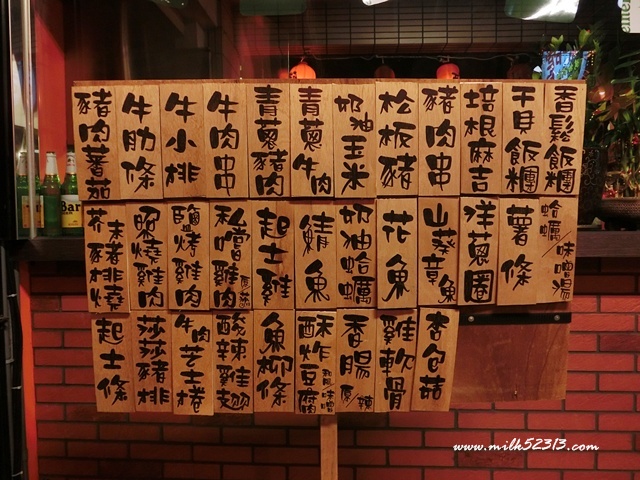 香鬆飯糰
干貝飯糰
培根麻吉
豬肉串
松板豬
奶油玉米
青蔥牛肉
青蔥豬肉
牛肉串
牛小排
牛肋條
豬肉蕃茄
蛤蠣/味噌湯
薯條
洋蔥圈
山葵章魚
花魚
奶油蛤蠣
鯖魚
起士雞
私嚐雞肉
鹽烤雞肉
照燒雞肉
芥末豬排燒
杏包菇
雞軟骨
香腸 原/辣
酥炸豆腐 和風/味噌
魚柳條
酸辣雞翅
牛肉芝士捲
莎莎豬排
起士條
Bar
www.milk52313.com